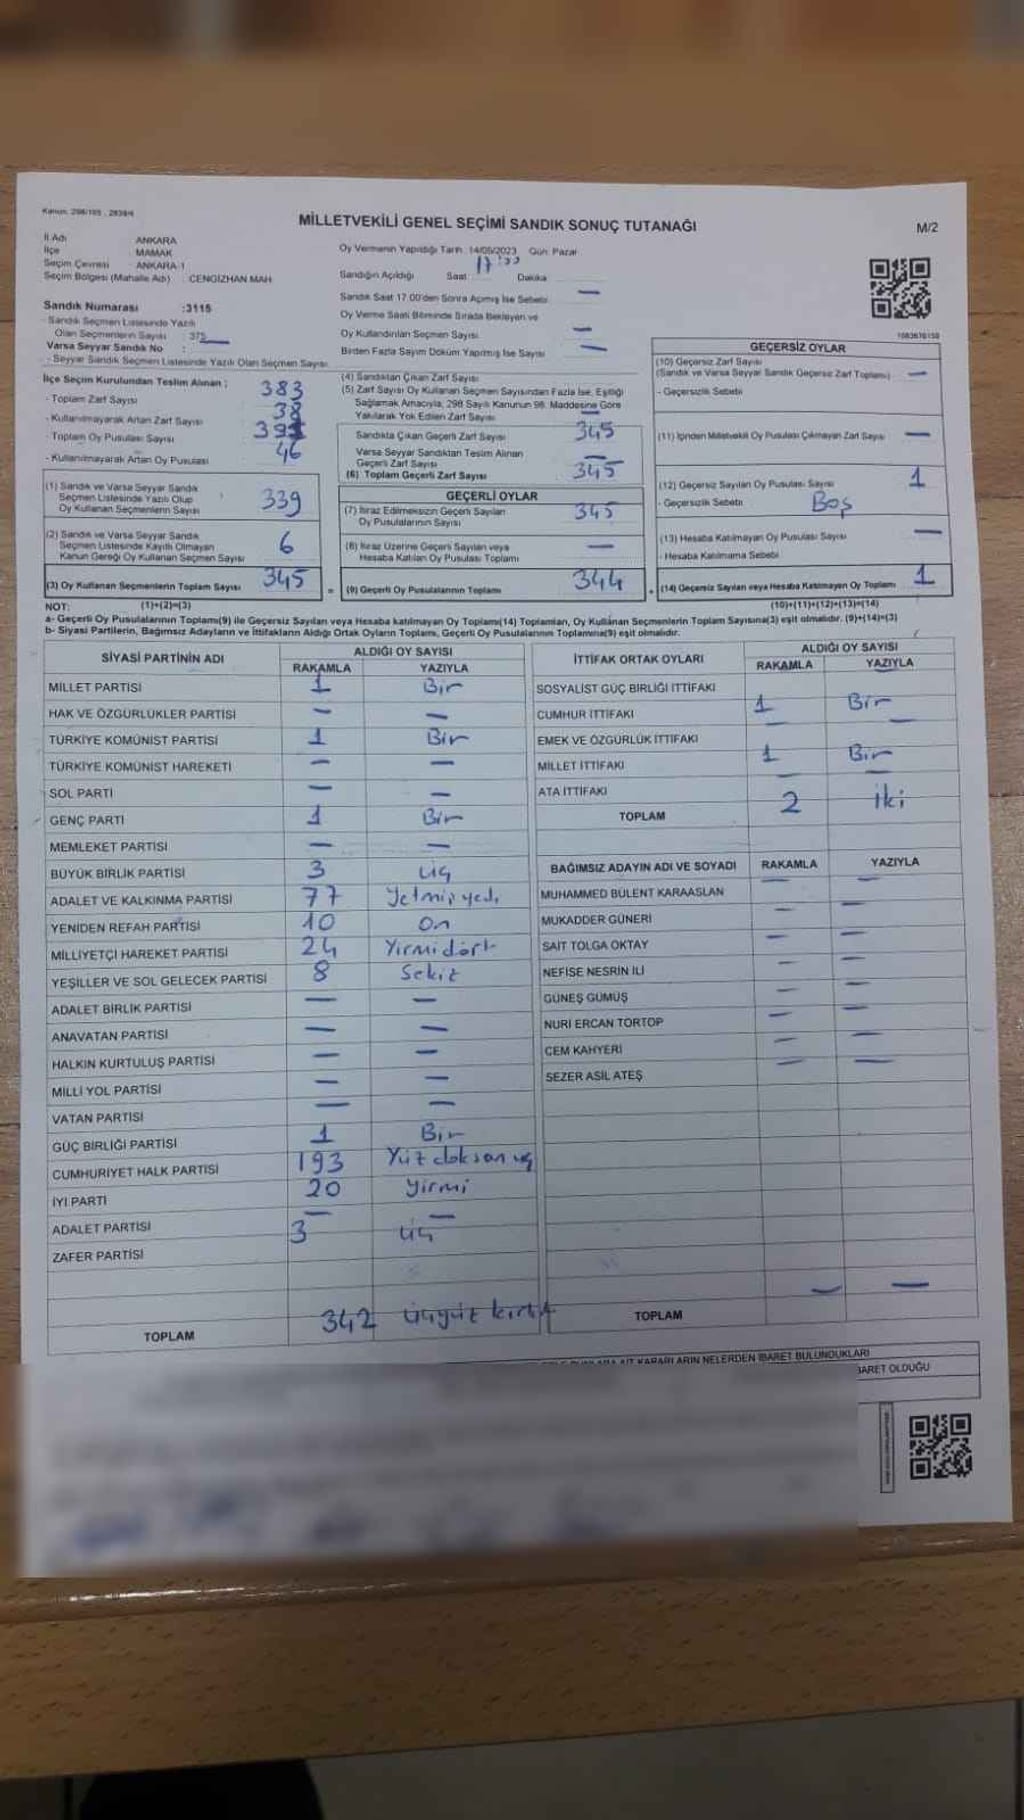 Kanun: 298/105 , 2839/4
MİLLETVEKİLİ GENEL SEÇİMİ SANDIK SONUÇ TUTANAĞI
M/2
İl Adı ANKARA
İlçe MAMAK
Seçim Çevresi ANKARA-1
Seçim Bölgesi (Mahalle Adı) CENGİZHAN MAH
Sandık Numarası :3115
Sandık Seçmen Listesinde Yazılı
Olan Seçmenlerin Sayısı : 375
Varsa Seyyar Sandık No :
- Seyyar Sandık Seçmen Listesinde Yazılı Olan Seçmen Sayısı
İlçe Seçim Kurulundan Teslim Alınan ;
- Toplam Zarf Sayısı 383
- Kullanılmayarak Artan Zarf Sayısı 38
- Toplam Oy Pusulası Sayısı
- Kullanılmayarak Artan Oy Pusulası 46
(1) Sandık ve Varsa Seyyar Sandık
Seçmen Listesinde Yazılı Olup
Oy Kullanan Seçmenlerin Sayısı 339
(2) Sandık ve Varsa Seyyar Sandık
Seçmen Listesinde Kayıtlı Olmayan
Kanun Gereği Oy Kullanan Seçmen Sayısı 6
(3) Oy Kullanan Seçmenlerin Toplam Sayısı 345
Oy Vermenin Yapıldığı Tarih :14/05/2023 Gün: Pazar
17:00
Sandığın Açıldığı Saat Dakika
Sandık Saat 17.00'den Sonra Açılmış İse Sebebi —
Oy Verme Saati Bitiminde Sırada Bekleyen ve
Oy Kullandırılan Seçmen Sayısı —
Birden Fazla Sayım Döküm Yapılmış İse Sayısı —
(4) Sandıktan Çıkan Zarf Sayısı
(5) Zarf Sayısı Oy Kullanan Seçmen Sayısından Fazla İse, Eşitliği
Sağlamak Amacıyla, 298 Sayılı Kanunun 98. Maddesine Göre
Yakılarak Yok Edilen Zarf Sayısı —
Sandıkta Çıkan Geçerli Zarf Sayısı 345
Varsa Seyyar Sandıktan Teslim Alınan
Geçerli Zarf Sayısı —
(6) Toplam Geçerli Zarf Sayısı 345
GEÇERLİ OYLAR
(7) İtiraz Edilmeksizin Geçerli Sayılan
Oy Pusulalarının Sayısı 345
(8) İtiraz Üzerine Geçerli Sayılan veya
Hesaba Katılan Oy Pusulası Toplamı —
= (9) Geçerli Oy Pusulalarının Toplamı 344
1083676150
GEÇERSİZ OYLAR
(10) Geçersiz Zarf Sayısı
(Sandık ve Varsa Seyyar Sandık Geçersiz Zarf Toplamı) —
- Geçersizlik Sebebi
(11) İçinden Milletvekili Oy Pusulası Çıkmayan Zarf Sayısı —
(12) Geçersiz Sayılan Oy Pusulası Sayısı 1
- Geçersizlik Sebebi Boş
(13) Hesaba Katılmayan Oy Pusulası Sayısı —
- Hesaba Katılmama Sebebi
+ (14) Geçersiz Sayılan veya Hesaba Katılmayan Oy Toplamı 1
NOT: (1)+(2)=(3) (10)+(11)+(12)+(13)=(14)
a- Geçerli Oy Pusulalarının Toplamı(9) ile Geçersiz Sayılan veya Hesaba katılmayan Oy Toplamı(14) Toplamları, Oy Kullanan Seçmenlerin Toplam Sayısına(3) eşit olmalıdır. (9)+(14)=(3)
b- Siyasi Partilerin, Bağımsız Adayların ve İttifakların Aldığı Ortak Oyların Toplamı, Geçerli Oy Pusulalarının Toplamına(9) eşit olmalıdır.
SİYASİ PARTİNİN ADI ALDIĞI OY SAYISI
RAKAMLA YAZIYLA
MİLLET PARTİSİ 1 Bir
HAK VE ÖZGÜRLÜKLER PARTİSİ — —
TÜRKİYE KOMÜNİST PARTİSİ 1 Bir
TÜRKİYE KOMÜNİST HAREKETİ — —
SOL PARTİ — —
GENÇ PARTİ 1 Bir
MEMLEKET PARTİSİ — —
BÜYÜK BİRLİK PARTİSİ 3 Üç
ADALET VE KALKINMA PARTİSİ 77 Yetmişyedi
YENİDEN REFAH PARTİSİ 10 On
MİLLİYETÇİ HAREKET PARTİSİ 24 Yirmidört
YEŞİLLER VE SOL GELECEK PARTİSİ 8 Sekiz
ADALET BİRLİK PARTİSİ — —
ANAVATAN PARTİSİ — —
HALKIN KURTULUŞ PARTİSİ — —
MİLLİ YOL PARTİSİ — —
VATAN PARTİSİ — —
GÜÇ BİRLİĞİ PARTİSİ 1 Bir
CUMHURİYET HALK PARTİSİ 193 Yüz doksan üç
İYİ PARTİ 20 Yirmi
ADALET PARTİSİ — —
ZAFER PARTİSİ 3 Üç
TOPLAM 342 Üçyüz
İTTİFAK ORTAK OYLARI ALDIĞI OY SAYISI
RAKAMLA YAZIYLA
SOSYALİST GÜÇ BİRLİĞİ İTTİFAKI —
CUMHUR İTTİFAKI 1 Bir
EMEK VE ÖZGÜRLÜK İTTİFAKI — —
MİLLET İTTİFAKI 1 Bir
ATA İTTİFAKI — —
TOPLAM 2 İki
BAĞIMSIZ ADAYIN ADI VE SOYADI RAKAMLA YAZIYLA
MUHAMMED BÜLENT KARAASLAN — —
MUKADDER GÜNERİ — —
SAİT TOLGA OKTAY — —
NEFİSE NESRİN İLİ — —
GÜNEŞ GÜMÜŞ — —
NURİ ERCAN TORTOP — —
CEM KAHYERİ — —
SEZER ASİL ATEŞ — —
TOPLAM — —
KARARLARIN NELERDEN İBARET BULUNDUKLARI
İBARET OLDUĞU